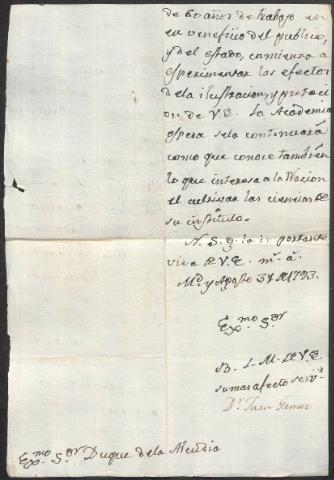 de 60 años de trabajo en
su veneficio del publico,
y del estado, comienza a
esperimentar los efectos
dela ilustracion, y protecci
on de V.E. La Academia
espera sela continuará
como que conoce tambien
lo que interesa a la Nacion
el cultivar las ciencias de
su instituto.
N. S. g. la importante
vida de V.E. m.s a.s
M.d y Agosto 31 de 1793.
Ex.mo S.or
B. L. M. de V.E.
su mas afecto serv.r
D.n Juan Gamez
Ex.mo S.or Duque dela Alcudia